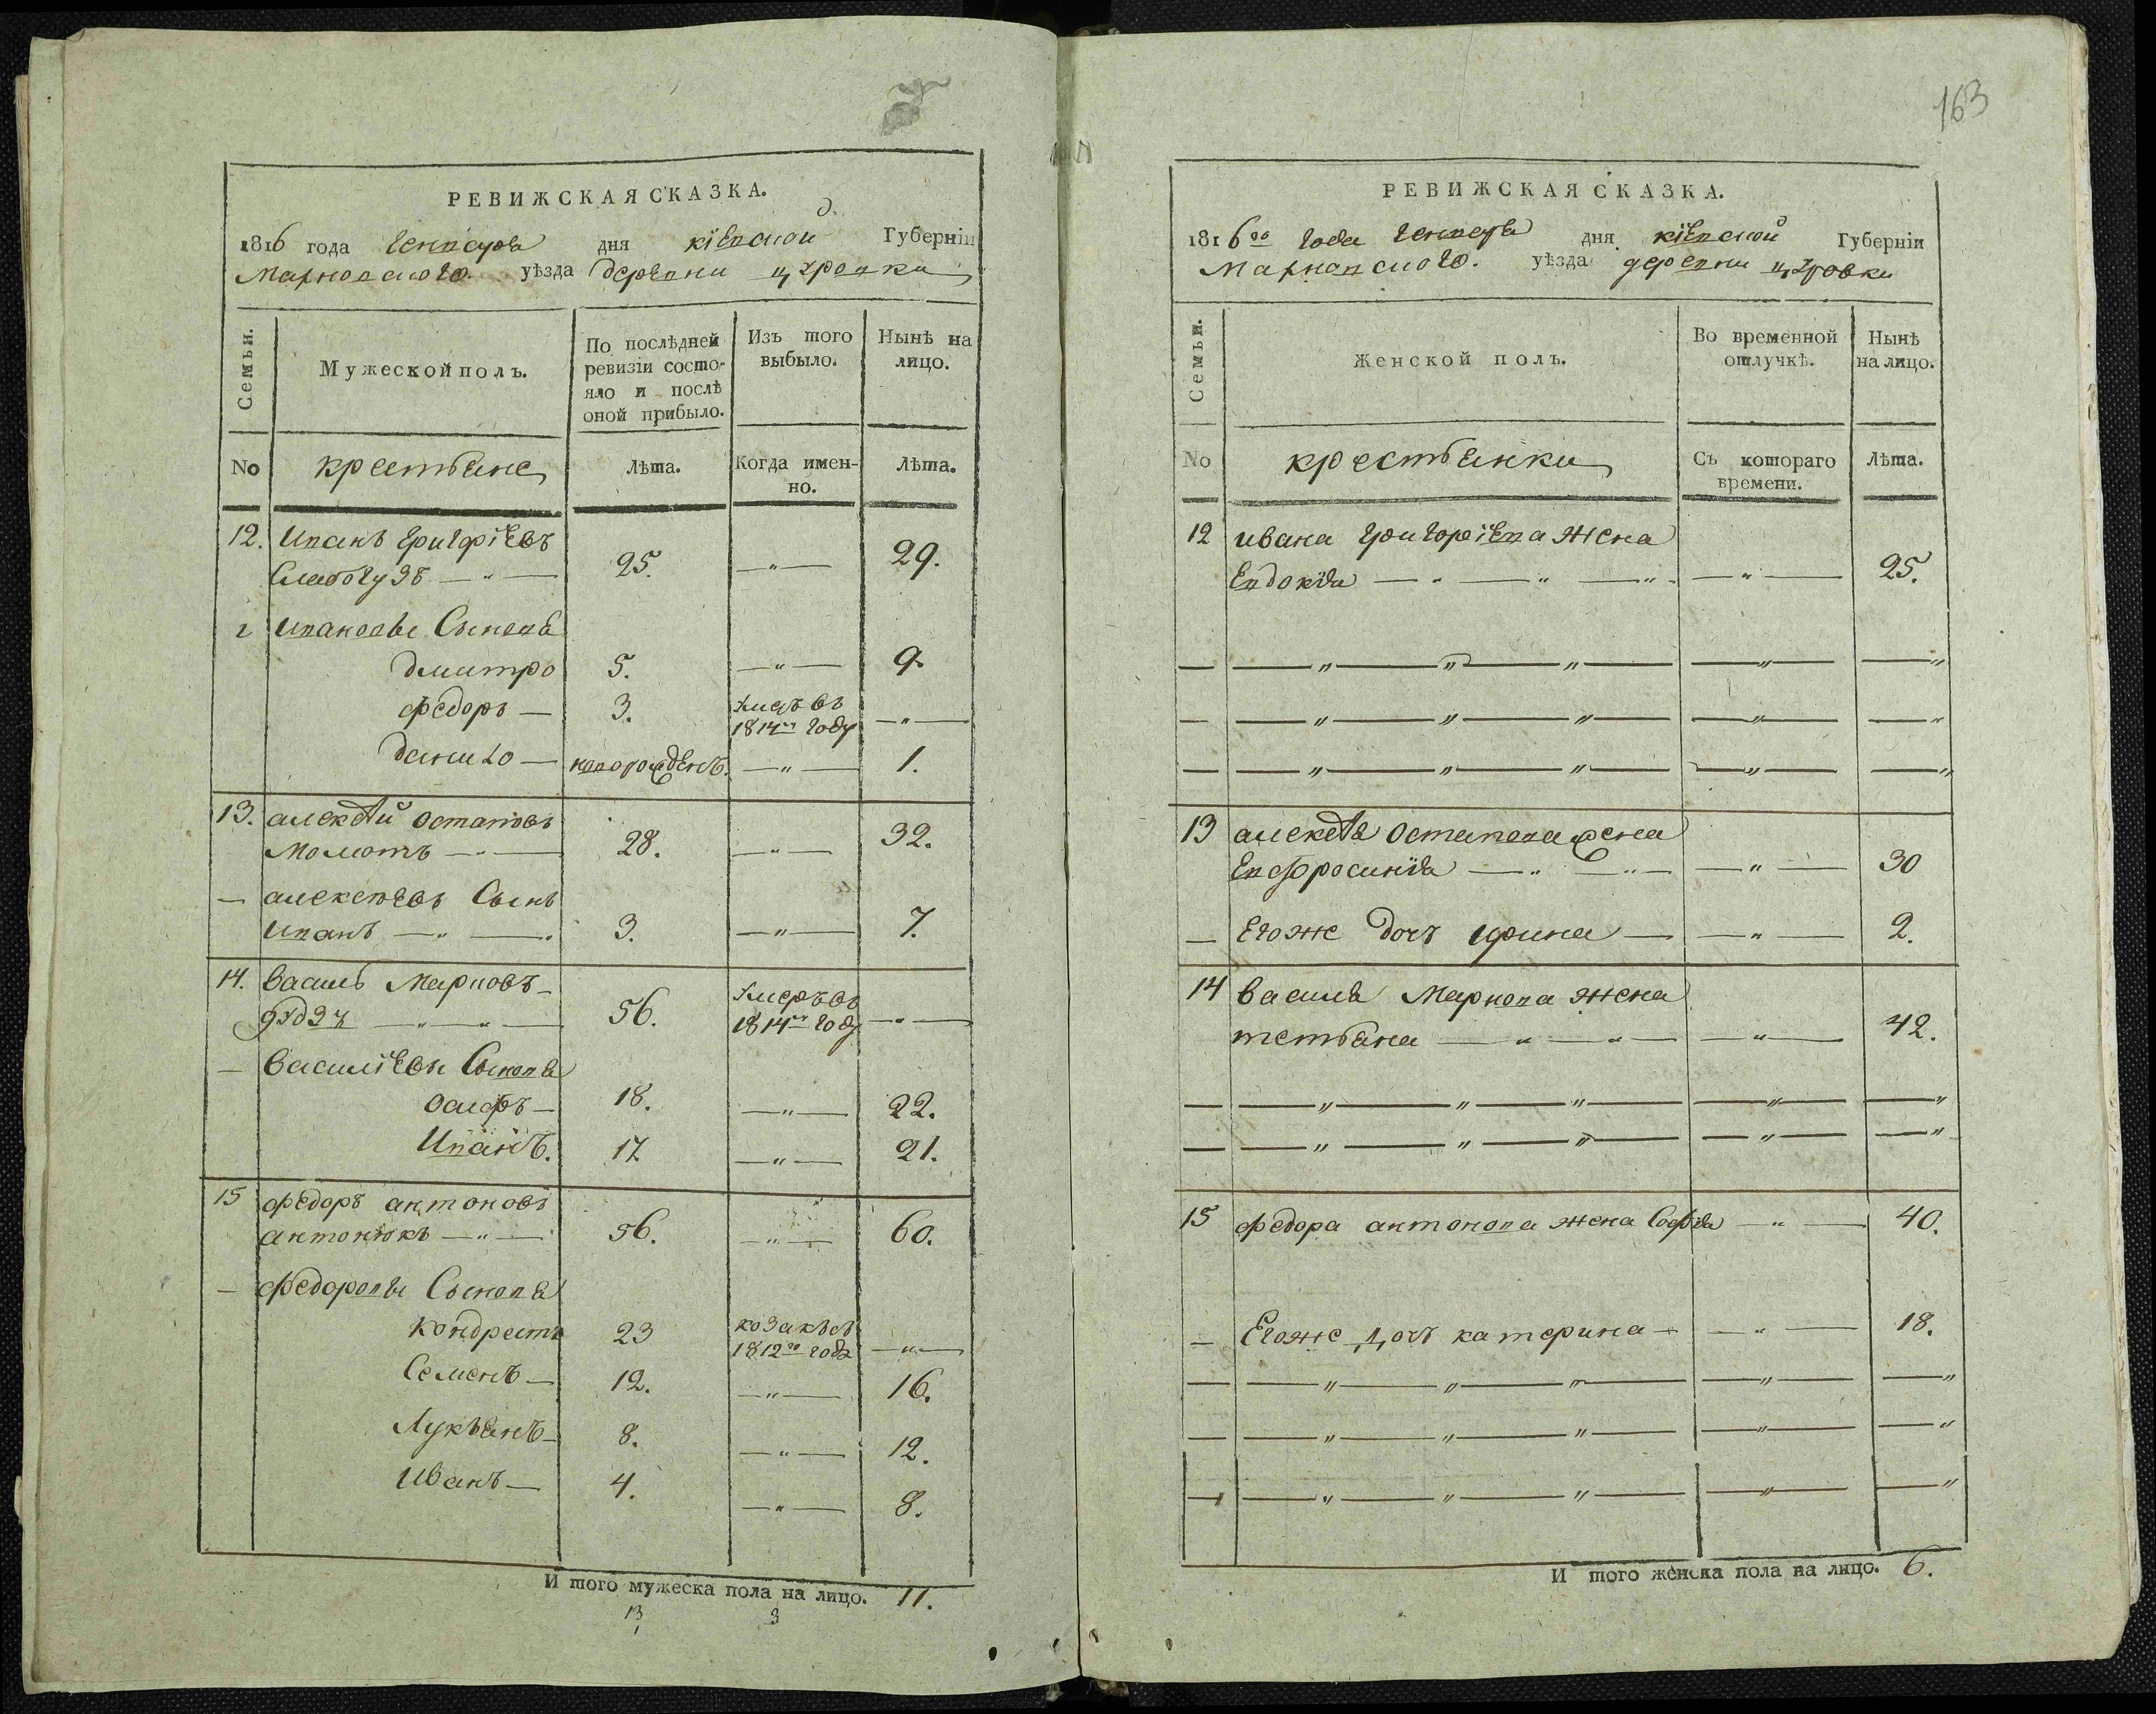 РЕВИЖСКАЯ СКАЗКА.
1816 года генваря дня кіевской Губерніи
Махновского уѣзда деревни
Семьи.
Мужеской полъ.
По послѣдней ревизіи состояло и послѣ оной прибыло.
Изъ того выбыло.
Нынѣ на лицо.
No
крестьяне
Лѣта.
Когда именно.
Лѣта.
12. Иванъ Григоріевъ
25. — " — 29.
2 Ивановы Сынова
Дмитро 5. — " — 9.
Федоръ — 3. умеръ въ 1814м году — " —
Данило — новорожденъ. — " — 1.
13. алексѣй Остаповъ
Моломъ — " — 28. — " — 32.
— алексѣевъ Сынъ
Иванъ — " — 3. — " — 7.
14. Василь Марковъ —
— " — " — 56. Умеръ въ 1814м году — " —
— Василіевы Сынова
Осифъ — 18. — " — 22.
Иванъ. 17 — " — 21.
15 Федоръ антоновъ
антонюкъ — " — 56. — " — 60.
— Федоровы Сынова
Кондратъ 23 козакъ съ 1812го года — " —
Семенъ — 12. — " — 16.
Лукъянъ — 8. — " — 12.
Иванъ — 4. — " — 8.
И того мужеска пола на лицо. 11.
13 3
163
РЕВИЖСКАЯ СКАЗКА.
1816го года генваря дня кіевской Губерніи
Махновского. уѣзда деревни
Семьи.
Женской полъ.
Во временной отлучкѣ.
Нынѣ на лицо.
No
крестьянки
Съ котораго времени.
Лѣта.
12 ивана Григоріева жена
Евдокія — " — " — " — — " — 25.
— — " — " — " — — " — — "
— — " — " — " — — " — — "
— — " — " — " — — " — — "
13 алексѣя Остапова жена
Евфросинія — " — " — — " — 30
— Егоже дочъ ирина — — " — 2.
14 василя Маркова жена
тетьяна — " — " — — " — 42.
— — " — " — " — — " — — "
— — " — " — " — — " — — "
15 федора антонова жена Софія — " — 40.
— Егоже дочъ катерина — — " — 18.
— — " — " — " — — " — — "
— — " — " — " — — " — — "
— — " — " — " — — " — — "
И того женска пола на лицо. 6.